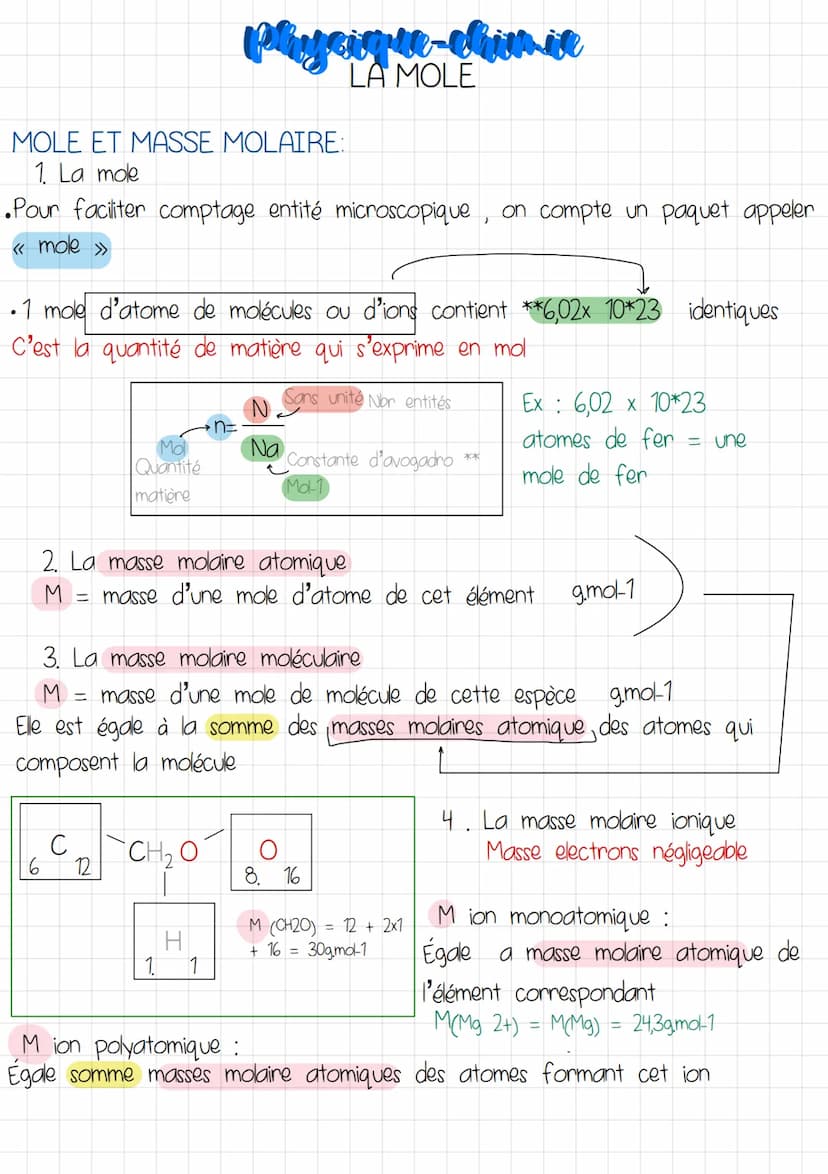 Physique-chimie
LA MOLE
MOLE ET MASSE MOLAIRE:
1. La mole
•Pour faciliter comptage entité microscopique , on compte un paquet appeler
« mole »
•1 mole d'atome de molécules ou d'ions contient **6,02x 10*23 identiques
C'est la quantité de matière qui s'exprime en mol
n=
N
Na
Sans unité Nbr entités
Mol
Quantité
matière
Constante d'avogadro **
Mol-1
Ex : 6,02 x 10*23
atomes de fer = une
mole de fer
2. La masse molaire atomique
M = masse d'une mole d'atome de cet élément g.mol-1
3. La masse molaire moléculaire
M = masse d'une mole de molécule de cette espèce g.mol-1
Elle est égale à la somme des masses molaires atomique des atomes qui
composent la molécule
C
6 12
CH₂O
O
8. 16
H
1. 1
M (CH2O) = 12 + 2x1
+ 16 = 30g.mol-1
4 . La masse molaire ionique
Masse electrons négligeable
M ion monoatomique :
Égale a masse molaire atomique de
l'élément correspondant
M(Mg 2+) = M(Mg) = 24,3g.mol-1
M ion polyatomique :
Égale somme masses molaire atomiques des atomes formant cet ion